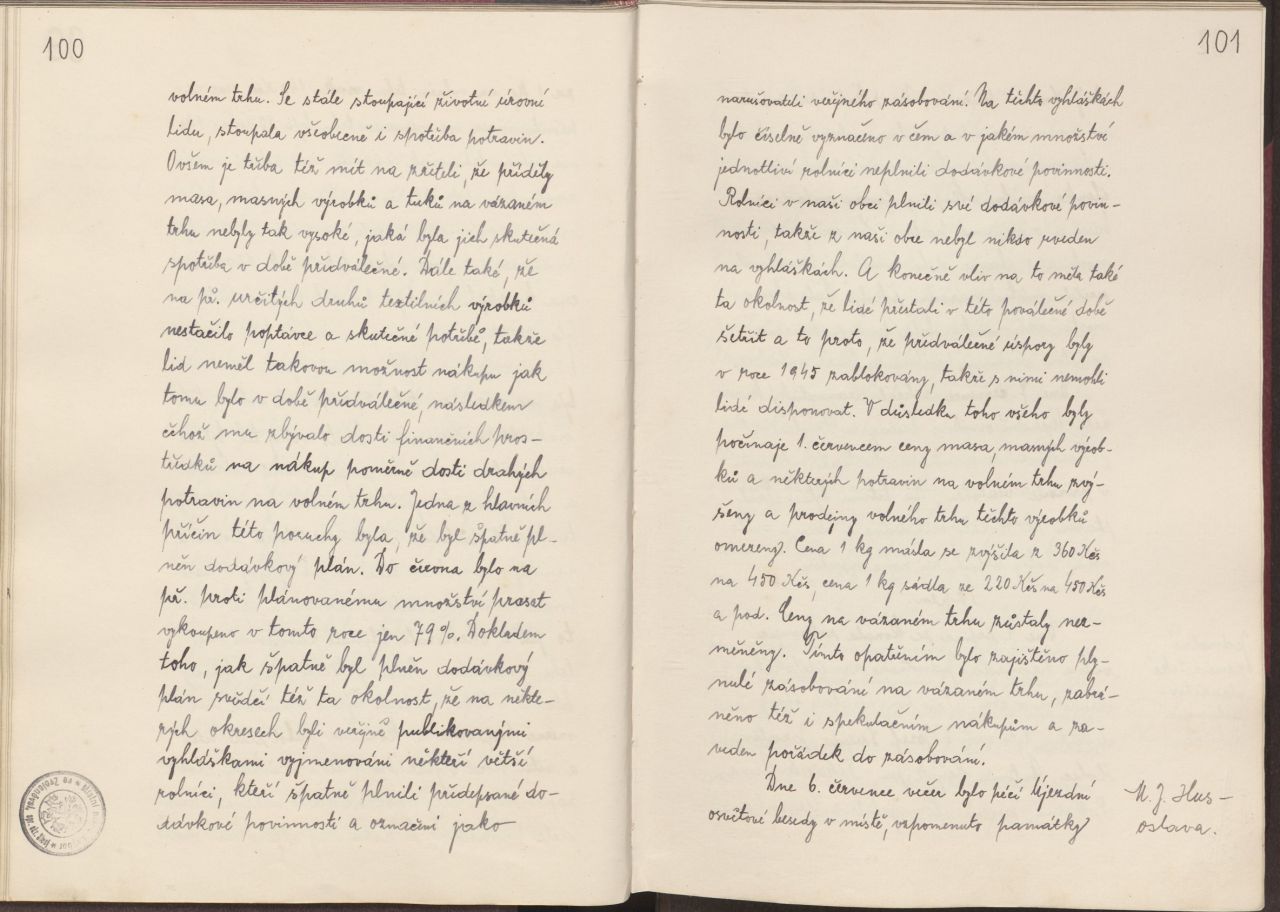 100
volném trhu. Se stále stoupající životní úrovní
lidu, stoupala všeobecně i spotřeba potravin.
Ovšem je třeba též mít na zřeteli, že příděly
masa, masných výrobků a tuků na vázaném
trhu nebyly tak vysoké, jaká byla jich skutečná
spotřeba v době předválečné. Dále také, že
na př. určitých druhů textilních výrobků
nestačilo poptávce a skutečné potřebě, takže
lid neměl takovou možnost nákupu jak
tomu bylo v době předválečné, následkem
čehož mu zbývalo dosti finančních pros-
tředků na nákup poměrně dosti drahých
potravin na volném trhu. Jedna z hlavních
příčin této poruchy byla, že byl špatně pl-
něn dodávkový plán. Do června bylo na
př. proti plánovanému množství prasat
vykoupeno v tomto roce jen 79%. Dokladem
toho, jak špatně byl plněn dodávkový
plán svědčí též ta okolnost, že na někte-
rých okresech byli veřejně publikovanými
vyhláškami vyjmenováni někteří větší
rolníci, kteří špatně plnili předepsané do-
dávkové povinnosti a označeni jako
101
narušovateli veřejného zásobování. Na těchto vyhláškách
bylo číselně vyznačeno v čem a v jakém množství
jednotliví rolníci neplnili dodávkové povinnosti.
Rolníci v naší obci plnili své dodávkové povin-
nosti, takže z naší obce nebyl nikdo uveden
na vyhláškách. A konečně vliv na to měla také
ta okolnost, že lidé přestali v této poválečné době
šetřit a to proto, že předválečné úspory byly
v roce 1945 zablokovány, takže s nimi nemohli
lidé disponovat. V důsledku toho všeho byly
počínaje 1. červencem ceny masa, masných výrob-
ků a některých potravin na volném trhu zvý-
šeny a prodejny volného trhu těchto výrobků
omezeny. Cena 1 kg másla se zvýšila z 360 Kčs
na 450 Kčs, cena 1 kg sádla ze 220 Kčs na 450 Kčs
a pod. Ceny na vázaném trhu zůstaly nez-
měněny. Tímto opatřením bylo zajištěno ply-
nulé zásobování na vázaném trhu, zabrá-
něno též i spekulačním nákupům a za-
veden pořádek do zásobování.
Dne 6. července večer bylo péčí Újezdní
osvětové besedy v místě, vzpomenuto památky
M. J. Hus-
oslava.